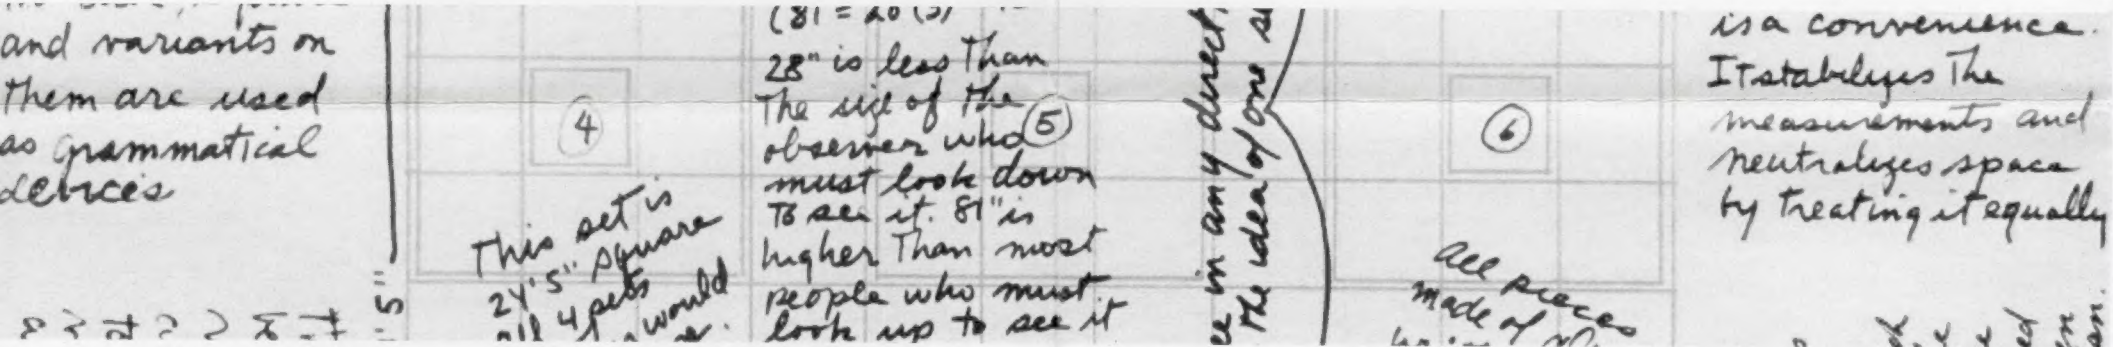 and variants on
them are used
as grammatical
devices
5"
4
This set is
24'5" square
all 4 sets
would
(81 = 28 (3)
28" is less than
The size of the
observer who
must look down
To see it. 81" is
higher Than most
people who must
look up to see it
5
in any direct
the idea of one
6
all pieces
made of
is a convenience.
It stabilizes The
measurements and
neutralizes space
by treating it equally